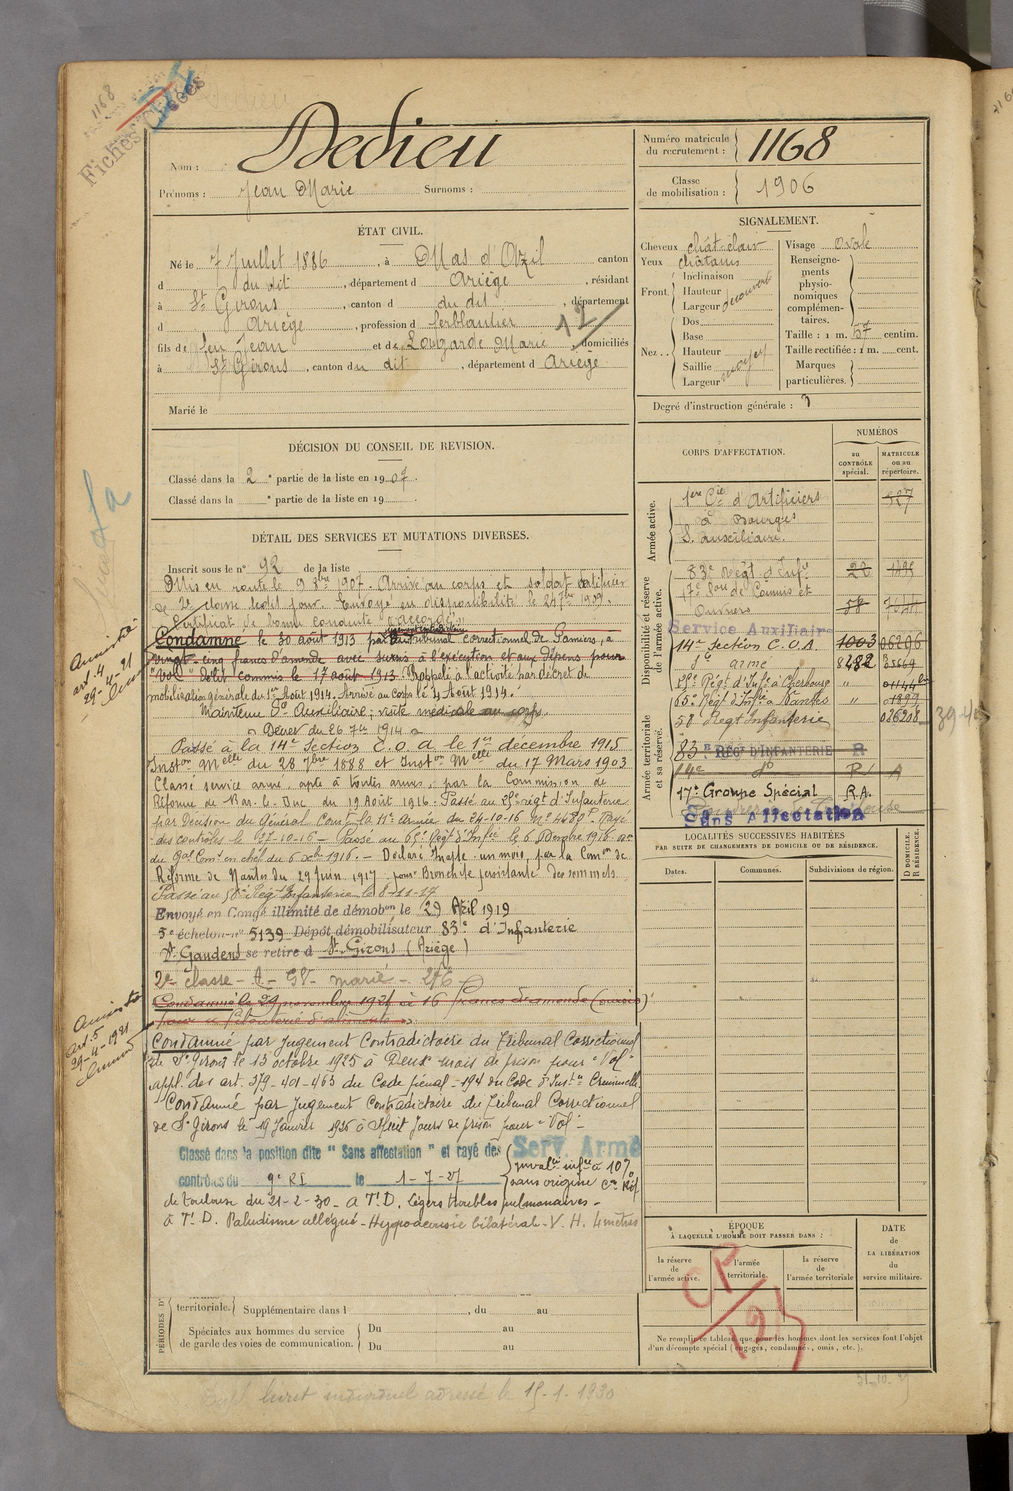 1168
Fiches
Nom : Dedieu
Prénoms : Jean Marie Surnoms :
Numéro matricule du recrutement : 1168
Classe de mobilisation : 1906
ÉTAT CIVIL.
Né le 7 Juillet 1886, à Mas d'Azil canton
d du dit, département d Ariège, résidant
à St Girons, canton d du dit, département
d Ariège, profession d ferblantier
12
fils de feu Jean et de Lougarde Marie, domiciliés
à St Girons, canton du dit, département d Ariège
Marié le
SIGNALEMENT.
Cheveux chât-clair
Yeux châtains
Front. Inclinaison
Hauteur
Largeur découvert
Nez.. Dos
Base
Hauteur
Saillie
Largeur moyen
Visage Ovale
Renseignements physionomiques complémentaires.
Taille : 1 m. 57 centim.
Taille rectifiée : 1 m. cent.
Marques particulières.
Degré d'instruction générale : 3
DÉCISION DU CONSEIL DE REVISION.
Classé dans la 2e partie de la liste en 1907.
Classé dans la e partie de la liste en 19 .
DÉTAIL DES SERVICES ET MUTATIONS DIVERSES.
Inscrit sous le n° 92 de la liste
Mis en route le 9 8bre 1907. Arrivé au corps et soldat
de 2e classe ledit jour. Envoyé en disponibilité le 1909.
Certificat de bonne conduite accordé.
Condamné le 30 août 1913 par le tribunal correctionnel de Pamiers, à
vingt-cinq francs d'amende avec sursis à l'exécution et aux dépens pour
"Vol" délit commis le 17 août 1913. Rappelé à l'activité par décret de
mobilisation générale du 1er Août 1914. Arrivé au corps le 4 Août 1914.
Maintenu Sce Auxiliaire; visite médicale au corps
Passé à la 14e Section C.O.A le 1er décembre 1915
Inston Melle du 28 7bre 1888 et Inston Melle du 17 Mars 1903
Classé service armé, apte à toutes armes, par la Commission de
Réforme de Bar-le-Duc du 19 Août 1916. Passé au régt d'Infanterie
par décision du Général Comt la 11e Armée du 24-10-16 Rayé
des contrôles le 27-10-16 - Passé au 65e Régt d'Infie le 6 Décembre 1916
du Gal Comt en chef du 6 xbre 1916. - Déclaré Inapte un mois, par la Comon de
Réforme de Nantes du 29 Juin 1917 pour Bronchite persistante des sommets.
Passé au 58e Régt Infanterie le 8-11-17
Envoyé en Congé illimité de démobon le 29 Avril 1919
5e échelon n° 5139 Dépôt démobilisateur 83e d'Infanterie
St Gaudens se retire à St Girons (Ariège)
2e classe - A - SV - marié -
Condamné le 29 novembre 1921 à 16 francs d'amende (sursis)
Condamné par Jugement Contradictoire du Tribunal Correctionnel
de St Girons le 13 octobre 1925 à Deux mois de prison pour "Vol"
appl. des art. 379-401-463 du Code pénal - 194 du Code d'Inston Criminelle
Condamné par Jugement Contradictoire du Tribunal Correctionnel
de St Girons le 19 Janvier 1926 à Huit Jours de prison pour "Vol" -
Classé dans la position dite "Sans affectation" et rayé des
contrôles du 9e RI le 1-7-27
Serv. Armé
invalté infre à 10%
sans origine Con Réf
de Toulouse du 21-2-30 - à T.D. légers troubles pulmonaires -
à T.D. Paludisme allégué - Hypoacousie bilatérale - V.H. 4 mètres
Amnistié
art. 4
29-4-21
Amnistié
art. 5
29-4-1921
CORPS D'AFFECTATION.
NUMÉROS
au CONTRÔLE spécial.
MATRICULE ou au répertoire.
Armée active.
Disponibilité et réserve de l'armée active.
Armée territoriale et sa réserve.
1ere Cie d'Artificiers 527
à Bourges
S. auxiliaire.
83e Régt d'Infie 1495
17e Son de Commis et
Ouvriers
Service Auxiliaire
14e Section C.O.A. 1003 06296
Sce armé 8282
Régt d'Infie à Cherbourg "
65e Régt d'Infie à Nantes "
58 Regt Infanterie
83e RÉGt D'INFANTERIE R
14e do
17e Groupe Spécial R.A.
Sans Affectation
LOCALITÉS SUCCESSIVES HABITÉES
PAR SUITE DE CHANGEMENTS DE DOMICILE OU DE RÉSIDENCE.
D DOMICILE. R RÉSIDENCE.
Dates. Communes. Subdivisions de région.
ÉPOQUE
À LAQUELLE L'HOMME DOIT PASSER DANS :
la réserve de l'armée active.
l'armée territoriale.
la réserve de l'armée territoriale
DATE de LA LIBÉRATION du service militaire.
Ne remplir ce tableau que pour les hommes dont les services font l'objet
d'un décompte spécial (engagés, condamnés, omis, etc.).
territoriale. Supplémentaire dans l , du au
Spéciales aux hommes du service
de garde des voies de communication. Du au
Du au
livret individuel adressé le 15-1-1930